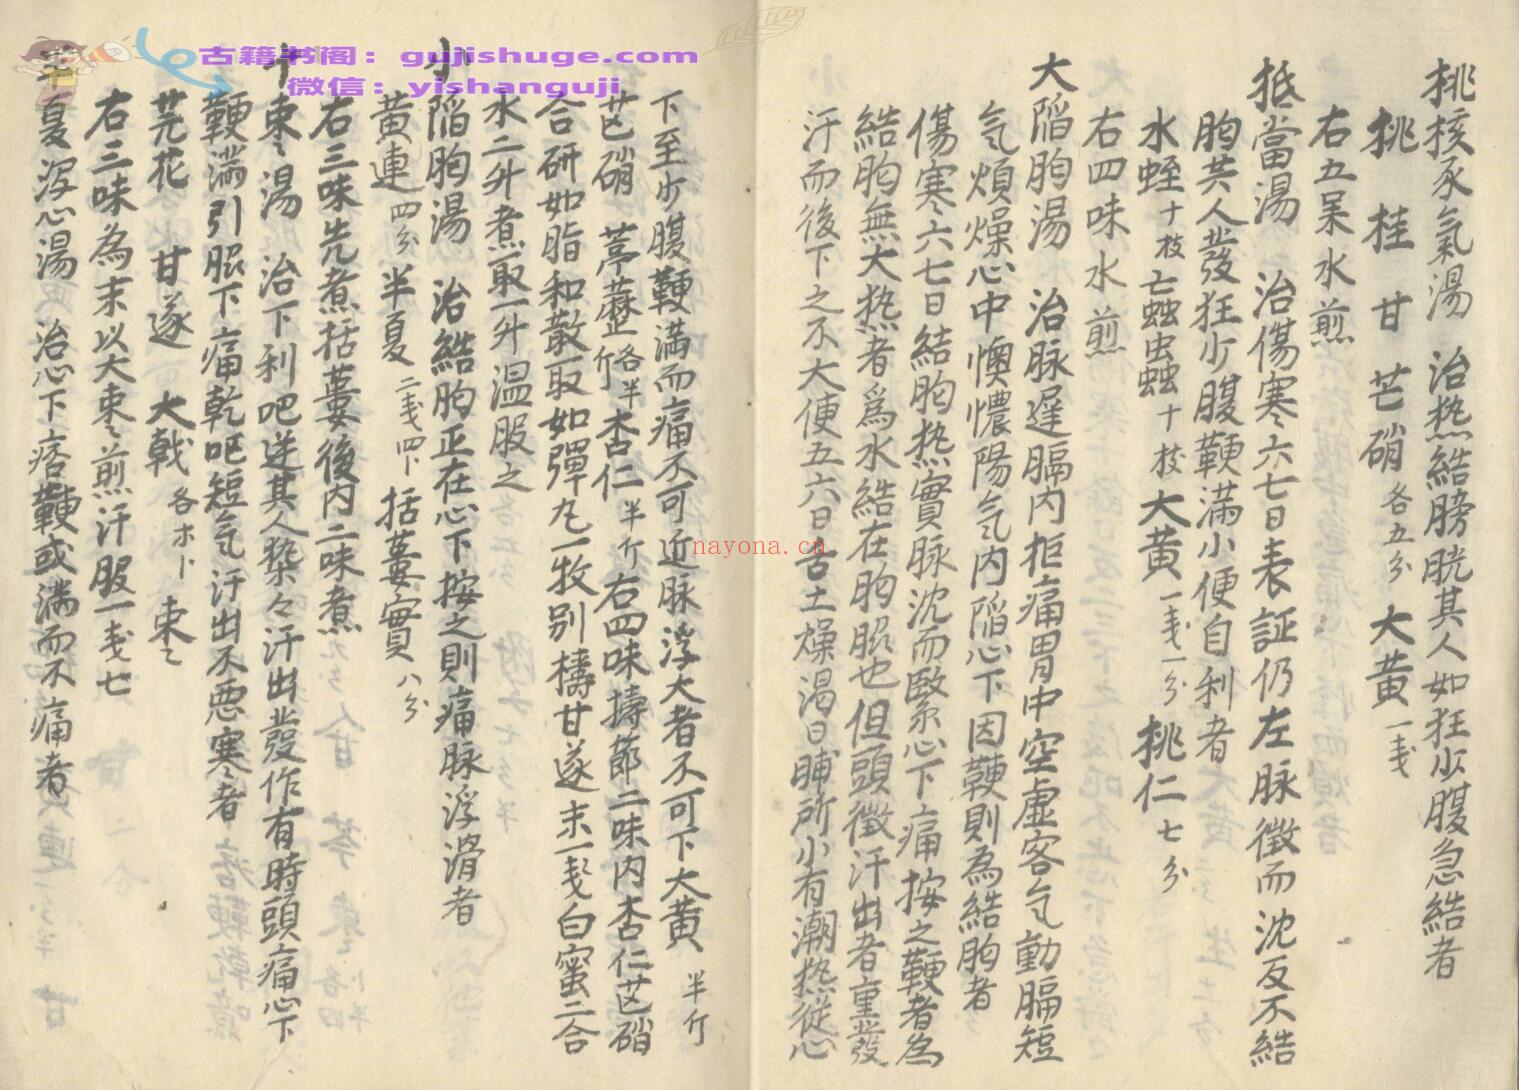 桃核承氣湯　治热結膀胱其人如狂少腹急結者
桃　桂　甘　芒硝各五分　大黄一戔
右五味水煎
抵當湯　治傷寒六七日表証仍左脉微而沈反不結
胸其人發狂少腹鞕満小便自利者
水蛭十枝　虻蟲十枝　大黄一戔一分　桃仁七分
右四味水煎
大陥胸湯　治脉遅膈内拒痛胃中空虚客气動膈短
气煩燥心中懊憹陽气内陥心下因鞕則為結胸者
傷寒六七日結胸热實脉沈而緊心下痛按之鞕者為
結胸無大热者爲水結在胸脇也但頭微汗出者重發
汗而後下之不大便五六日舌土燥渇日晡所小有潮热従心
下至少腹鞕満而痛不可近脉浮大者不可下大黄半斤
芒硝　葶藶各半斤　杏仁半斤　右四味擣篩二味内杏仁芒硝
合研如脂和散取如彈丸一枚别擣甘遂末一戔白蜜二合
水二升煮取一升温服之
小陥胸湯　治結胸正在心下按之則痛脉浮滑者
黄連四分　半夏二戔四卜　括蔞實八分
右三味先煮括蔞後内二味煮
十棗湯　治下利吧逆其人漐々汗出發作有時頭痛心下
鞕満引脇下痛乾吧短气汗出不悪寒者
芫花　甘遂　大戟各木卜　棗
右三味為末以大棗煎汁服一戔七
半夏泻心湯　治心下痞鞕或満而不痛者
古籍书阁：gujishuge.com
微信：yishanguji
nayona.cn